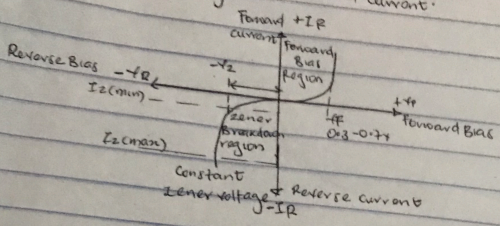 current.
Forward +IR
current
Forward
Bias
Region
Reverse Bias -VR
-VZ
IZ(min)
+VF
Forward Bias
VF
0.3-0.7V
Zener
Breakdown
region
IZ(max)
Constant
Zener voltage
Reverse current
-IR